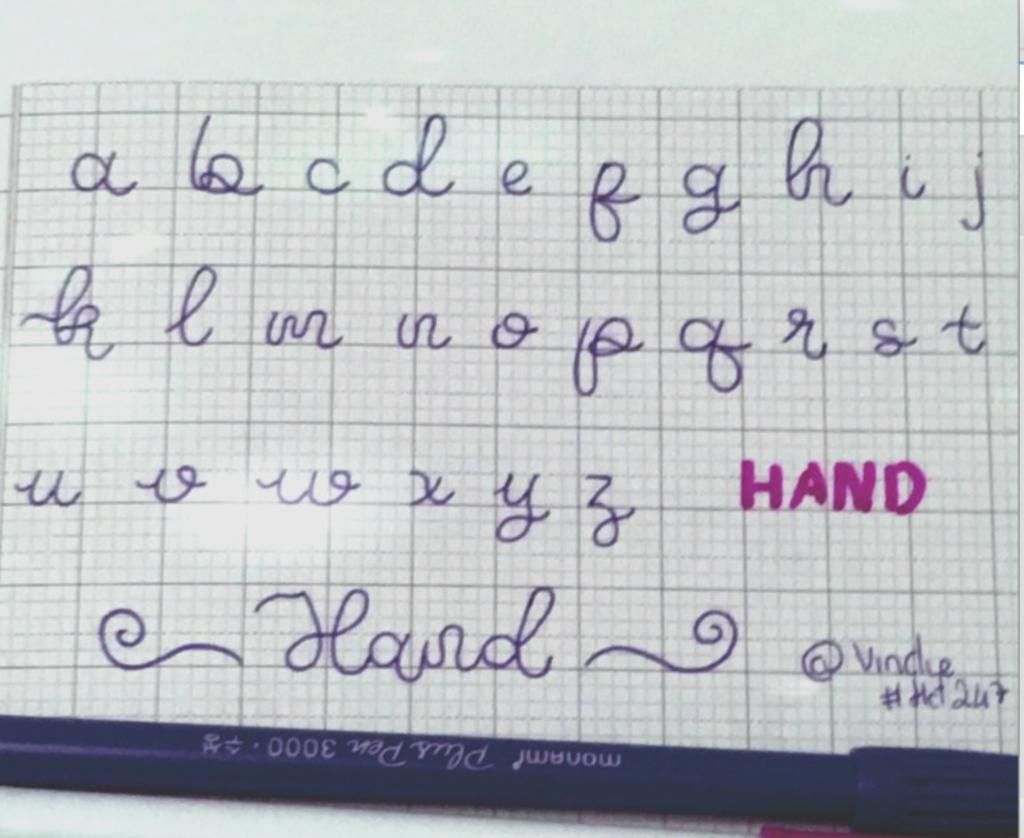 a b c d e f g h i j
k l m n o p q r s t
u v w x y z HAND
Hand
@Vindye
#Hd247
monami Plus Pen 3000 · 수성